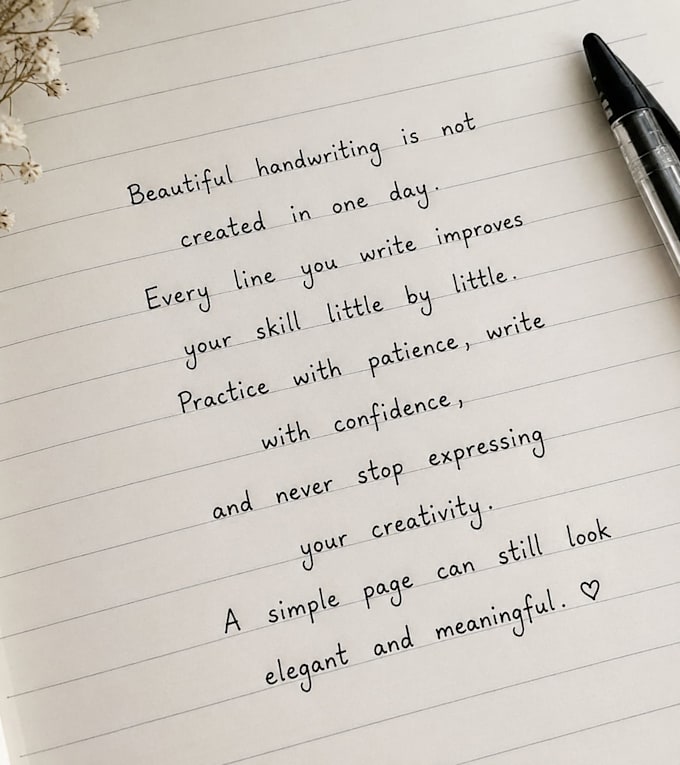 Beautiful handwriting is not
created in one day.
Every line you write improves
your skill little by little.
Practice with patience, write
with confidence,
and never stop expressing
your creativity.
A simple page can still look
elegant and meaningful. ♡